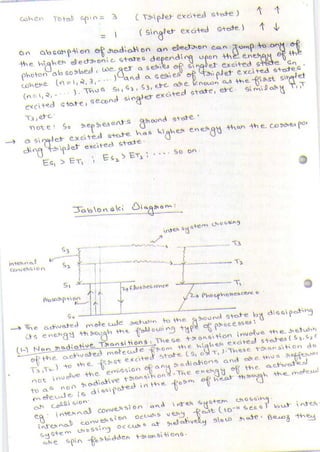 when Total spin = 3 (Triplet excited state) ↑ ↑
= 1 (singlet excited state) ↑ ↓
on absorption of radiation an electron can jump to any of
the higher electronic states depending upon the energy of the
photon absorbed. we get a series of singlet excited state Sn
where (n=1, 2, 3, ...) and a series of triplet excited states
(n=1, 2, ....). Thus S1, S2, S3, etc are known as the first singlet
excited state, second singlet excited state. Similarly T1, T
T3, etc
note: So represents ground state.
→ a singlet excited state has higher energy than the correspo
ding triplet excited state.
ES1 > ET1 ; ES2 > ET2 ; .... So on
Jablonski Diagram:
inter system crossing
S3 T3
internal
conversion
S2 T2
S1 T1
Absorption Fluorescence Phosphorescence
So
→ The activated molecule return to the ground state by dissipating
its energy through the following type of processes:
(1-) Non radiative Transitions: These transition involve the return
of the activated molecule from the higher excited states (S3, S2,
T3, T2) to the first excited state (S1 or T1). These transition do
not involve the emission of any radiations and are thus referred
to as non radiative transitions. The energy of the activated
molecule is dissipated in the form of heat through the molecul
ar collision.
eg: Internal conversion and inter system crossing
internal conversion occurs very fast but inter
system crossing occurs at relatively slow rate. they
are spin forbidden transitions.